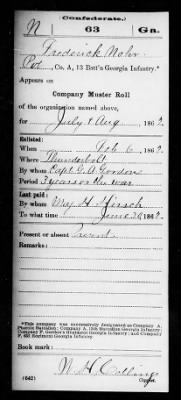 (Confederate.)
N 63 Ga.
Frederick Nohr
Pvt, Co. A, 13 Batt'n Georgia Infantry.*
Appears on
Company Muster Roll
of the organization named above,
for July & Aug, 1862.
Enlisted:
When Feb 6, 1862.
Where Thunderbolt
By whom Capt. G. A. Gordon
Period 3 years or the war
Last paid:
By whom Maj. H. Hirsch
To what time June 30, 1862.
Present or absent Present
Remarks:
*This company was successively designated as Company A,
Phoenix Battalion; Company A, 13th Battalion Georgia Infantry;
Infantry; and Company
F, 63d Regiment Georgia Infantry.
Book mark:
N. H. Collins
(642) Copyist.